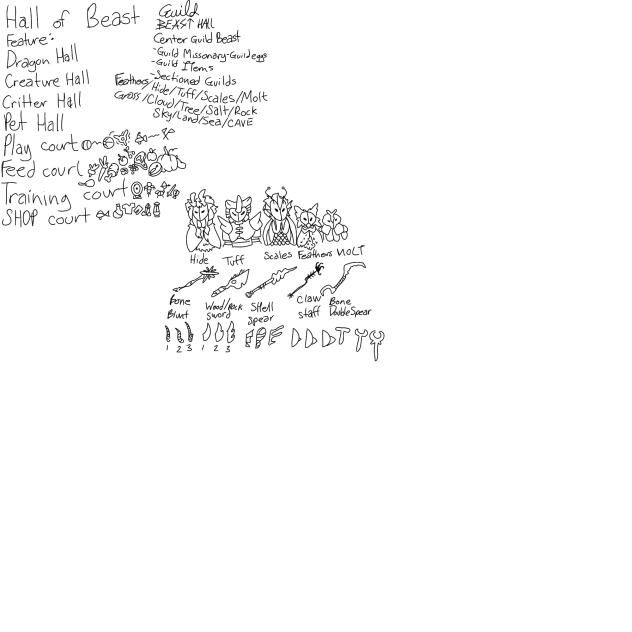 Hall of Beast
Feature:
Dragon Hall
Creature Hall
Critter Hall
Pet Hall
Play court
Feed court
Training court
SHOP court
Guild
BEAST HALL
Center Guild Beast
-Guild Missonary-Guildeggs
-Guild Items
-Sectioned Guilds
Feathers/Hide/Tuff/Scales/Molt
Grass/Cloud/Tree/Salt/Rock
Sky/Land/Sea/CAVE
Hide Tuff Scales Feathers MOLT
Bone Blunt
Wood/Rock sword
Shell spear
Claw staff
Bone DoubleSpear
1 2 3 1 2 3